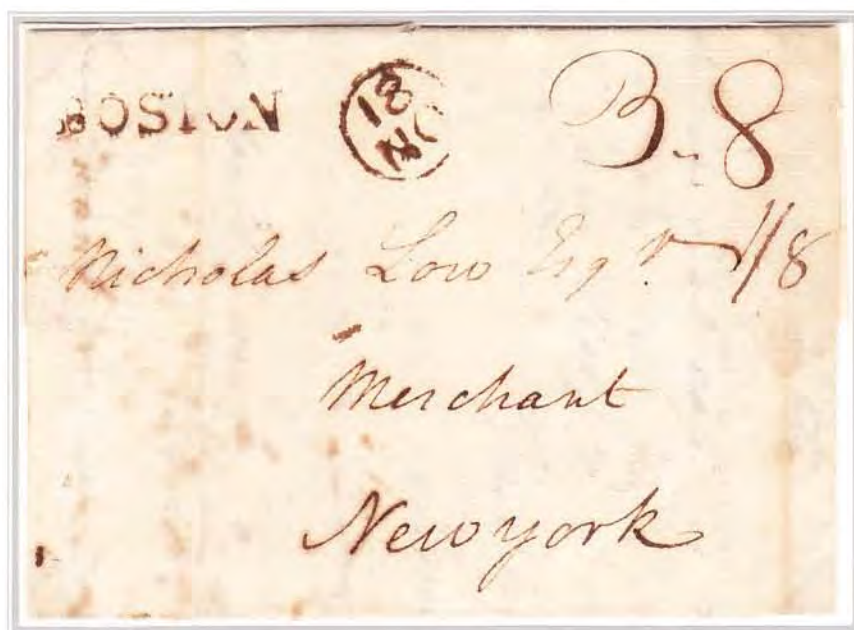 BOSTON 18 NO B. 8
Nicholas Low Esqr 1/8
Merchant
New york